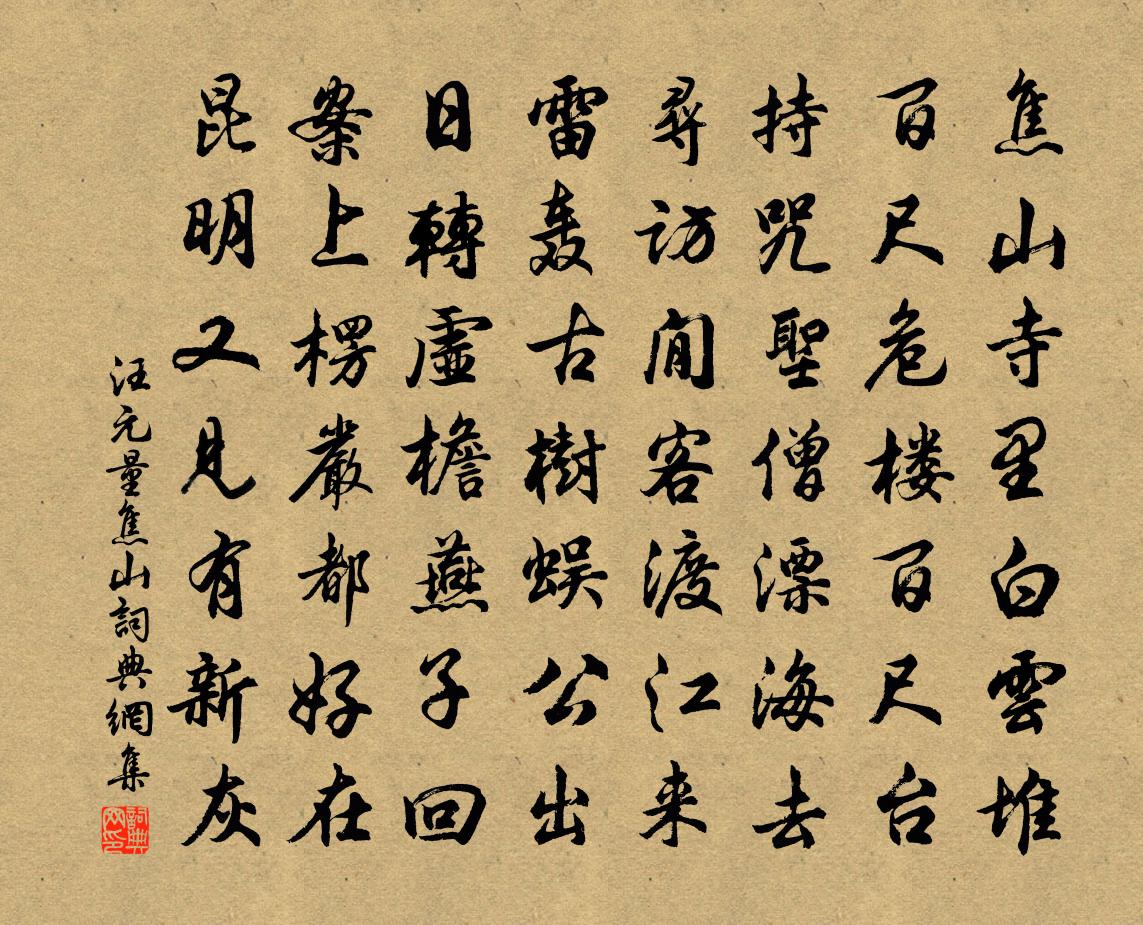 焦山寺里白雲堆
百尺危楼百尺台
持咒聖僧漂海去
尋访閒客渡江来
雷轰古樹蜈公出
日轉虚檐燕子回
案上楞嚴都好在
昆明又見有新灰
汪元量焦山詞典網集
詞典網印